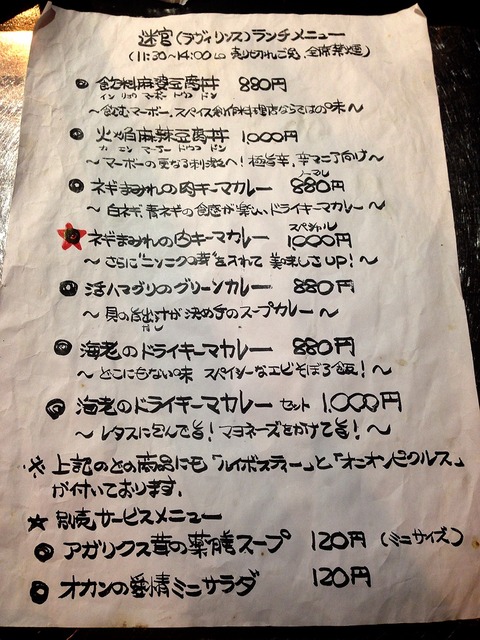 迷宮(ラヴィリンス)ランチメニュー
(11:30〜14:00 LO 売り切れご免、全席禁煙)
◎ 飲料麻婆豆腐丼 880円
インリョウ マーボー ドウフ ドン
〜飲むマーボー、スパイス創作料理店ならではの味〜
◎ 火焔麻辣豆腐丼 1,000円
カエン マーラー ドウフ ドン
〜マーボーの更なる刺激へ!極旨辛、辛マニア向け〜
◎ ネギまみれの肉キーマカレー ノーマル 880円
〜白ネギ、青ネギの食感が楽しいドライキーマカレー〜
★ ネギまみれの肉キーマカレー スペシャル 1,000円
〜さらに"ニンニクの芽"を入れて美味しさUP!〜
◎ 活ハマグリのグリーンカレー 880円
〜貝の旨出汁が決め手のスープカレー〜
だし
◎ 海老のドライキーマカレー 880円
〜どこにもない味 スパイシーなエビそぼろ飯!〜
◎ 海老のドライキーマカレー セット 1,000円
〜レタスに包んで旨!マヨネーズをかけて旨!〜
※上記のどの商品にも「ルイボスティー」と「オニオンピクルス」
が付いております。
★ 別売サービスメニュー
◎ アガリクス茸の薬膳スープ 120円(ミニサイズ)
◎ オカンの愛情ミニサラダ 120円